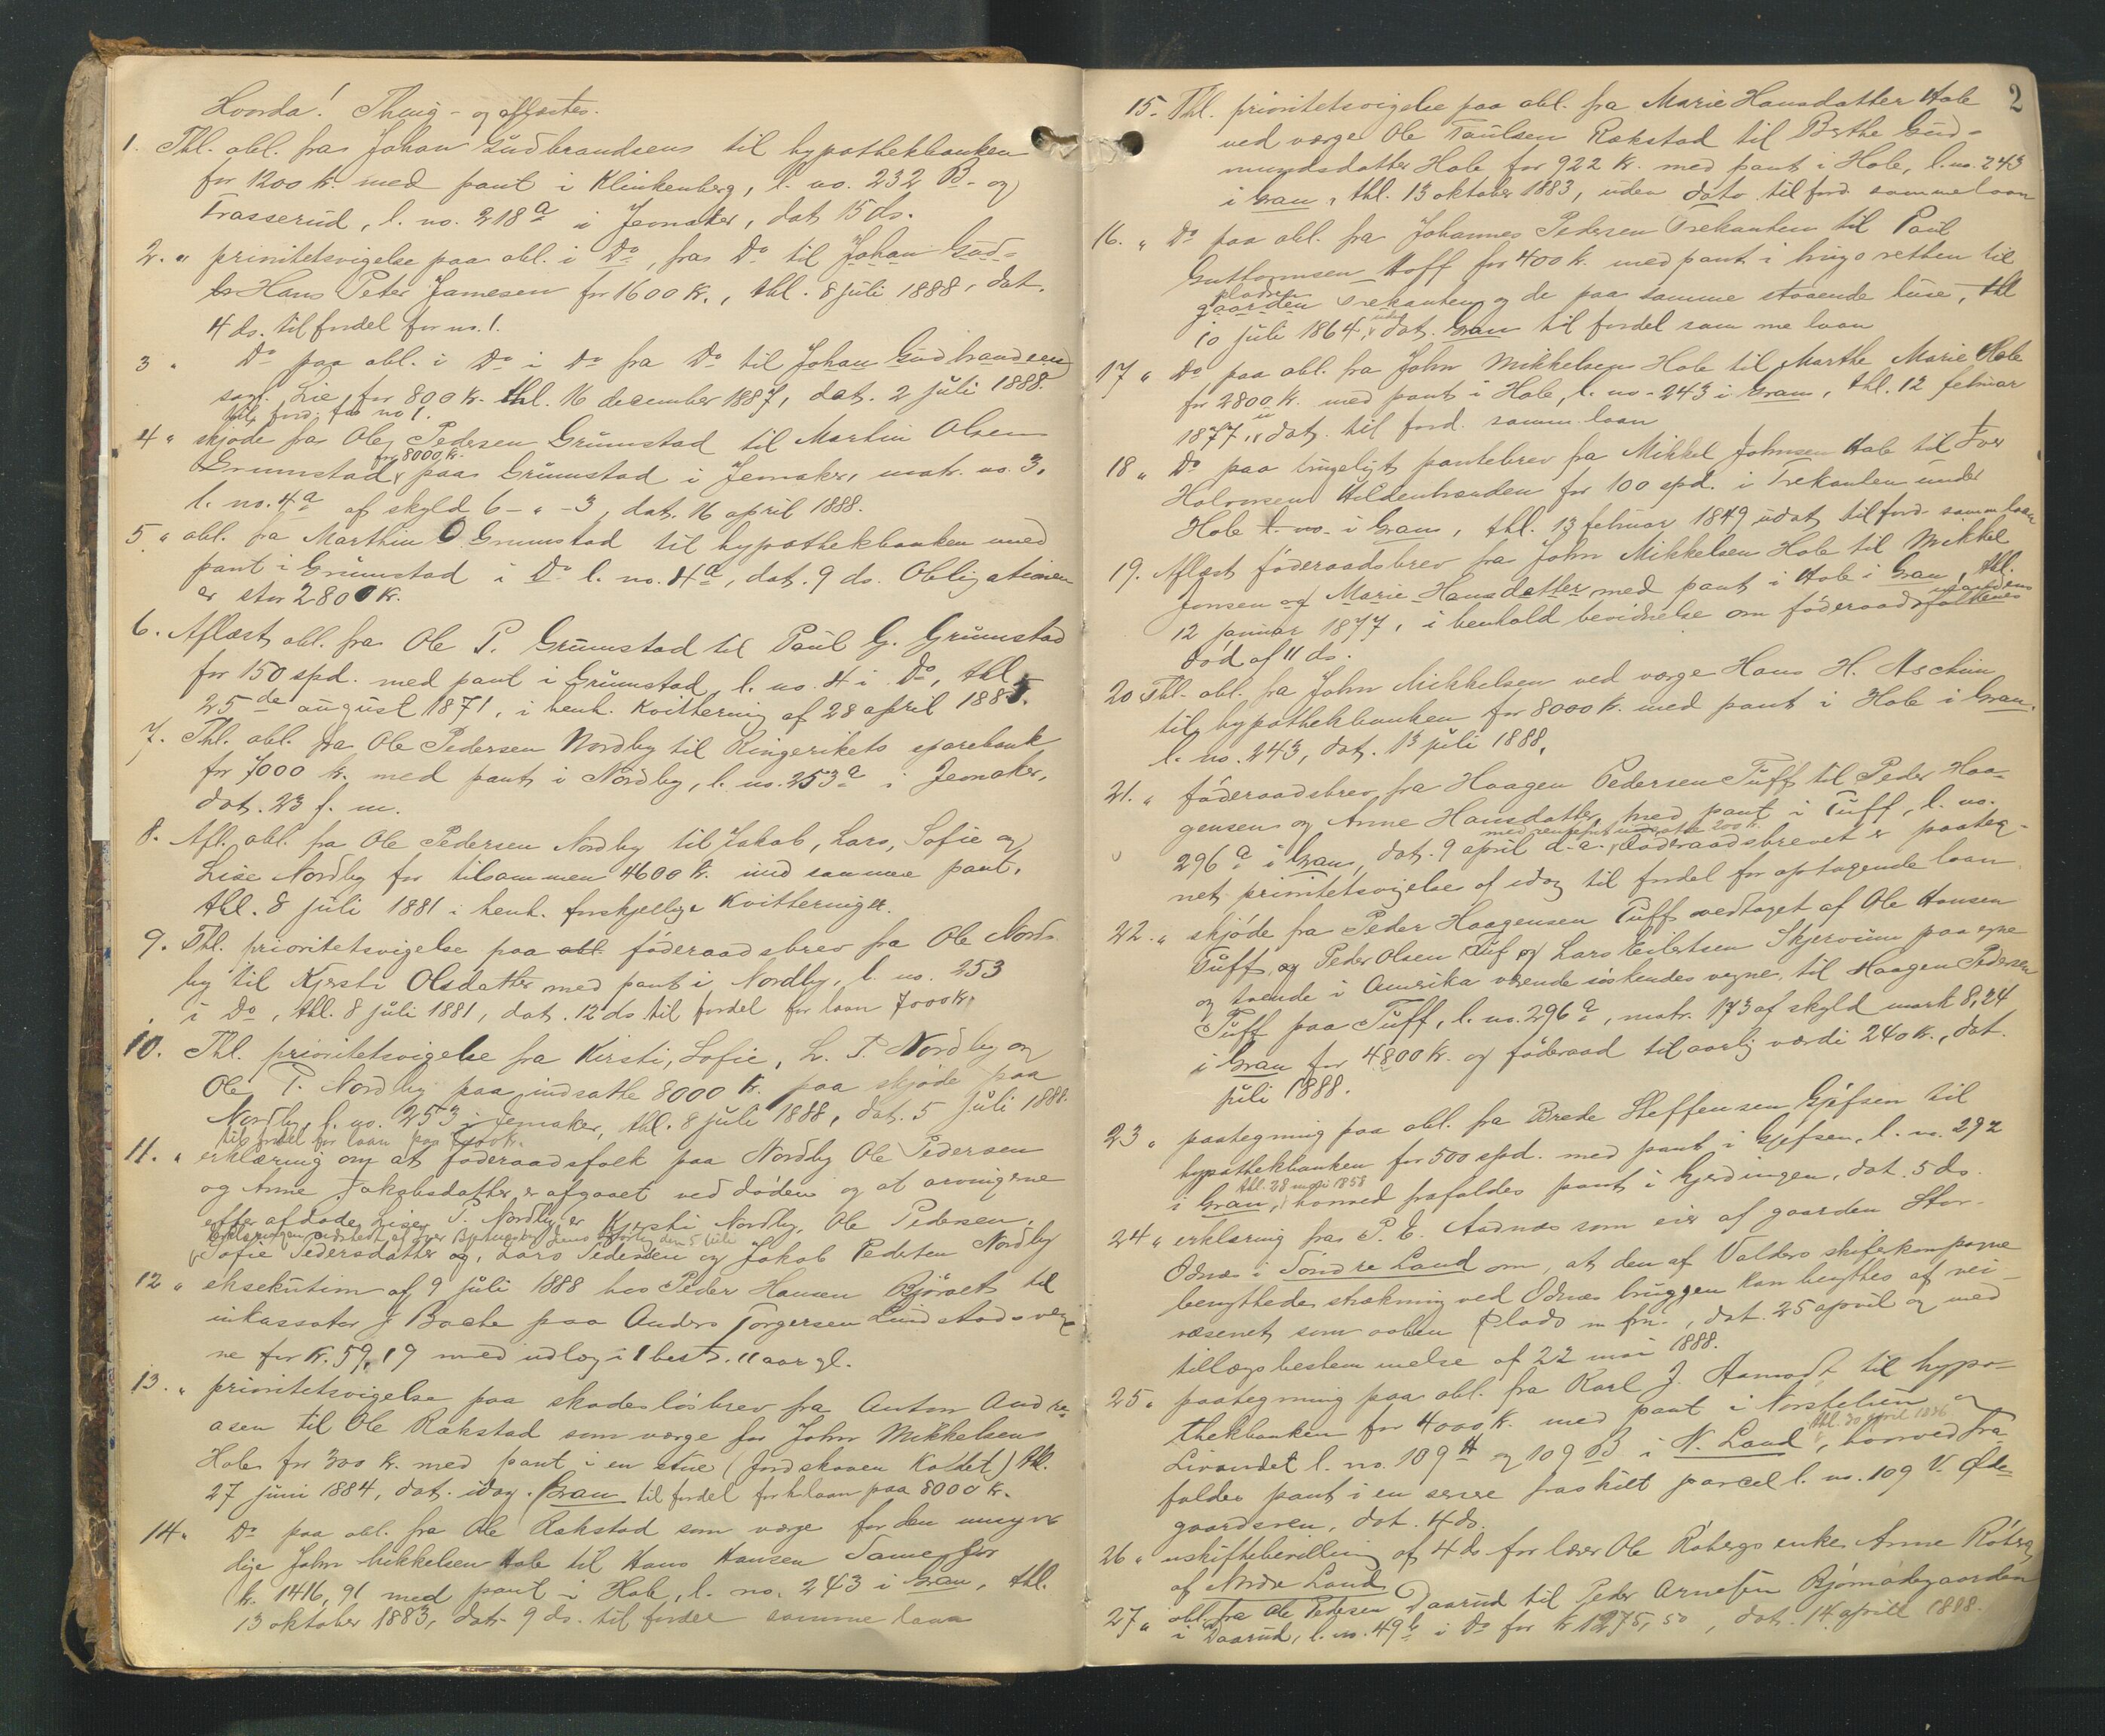 Hvorda! Thing- og aflæstes.
1. Thl. obl. fra Johan Gudbrandsens til hypothekbanken
for 1200 kr. med pant i Klinkenberg, l. no. 232 B. og
Trasserud, l. no. 218 a i Jevnaker, dat 15 ds.
2. " prioritetsvigelse paa obl. i Do, fra Do til Johan Gud-
br Hans Peter Jamesen for 1600 kr., thl. 8 juli 1888, dat.
4 ds. til fordel for no. 1.
3 " Do paa obl. i Do i Do fra Do til Johan Gudbrandsen
Lie, for 800 kr. thl. 16 december 1887, dat. 2 juli 1888.
til ford. for no 1.
4 " skjøde fra Ole Pedersen Grumstad til Martin Olsen
for 8000 kr.
Grumstad, paa Grumstad i Jevnaker, matr. no. 3,
l. no. 4 a af skyld 6 - " - 3, dat. 16 april 1888.
5. " obl. fra Marthin O. Grumstad til hypothekbanken med
pant i Grumstad i Do l. no. 4 a, dat. 9 ds. Obligationen
er stor 2800 kr.
6. Aflæst obl. fra Ole P. Grumstad til Paul G. Grumstad
for 150 spd. med pant i Grumstad, l. no. 4 i Do, thl.
25de august 1871, i henh. kvittering af 28 april 1885.
7. Thl. obl. fra Ole Pedersen Nordby til Ringerikets sparebank
for 7000 kr. med pant i Nordby, l. no. 253 a i Jevnaker,
dat. 23 f. m.
8. Afl. obl. fra Ole Pedersen Nordby til Jakob, Lars, Sofie og
Lise Nordby for tilsammen 4600 kr. med samme pant,
thl. 8 juli 1881 i henh. forskjellige kvitteringer.
9. Thl. prioritetsvigelse paa obl. føderaadsbrev fra Ole Nord-
by til Kjersti Olsdatter med pant i Nordby, l. no. 253
i Do, thl. 8 juli 1881, dat. 12 ds til fordel for laan 7000 kr.
10. Thl. prioritetsvigelse fra Kirsti, Sofie, L. P. Nordby og
Ole P. Nordby paa indsatte 8000 kr. paa skjøde paa
Nordby, l. no. 253 i Jevnaker, thl. 8 juli 1888, dat. 5 juli 1888.
til fordel for laan paa 7000 kr.
11. " erklæring om at føderaadsfolk paa Nordby Ole Pedersen
og Anne Jakobsdatter er afgaaet ved døden og at arvingerne
efter afdøde Lise P. Nordby er Kjersti Nordby, Ole Pedersen,
Sofie Pedersdatter og, Lars Pedersen og Jakob Pedersen Nordby
12 " eksekution af 9 juli 1888 hos Peder Hansen til
inkassator J Bache paa Anders Torgersen Lundstads veg-
ne for kr. 59,19 med udlæg i 1 hest. 11 aar gl.
13. " prioritetsvigelse paa skadesløsbrev fra Anton Andre-
asen til Ole Rækstad som værge for John Mikkelsen
Hole for 300 kr. med pant i en stue (Jordskaven Kottet) thl.
27 juni 1884, dat. idag. Gran til fordel for h laan paa 8000 kr.
14. " Do paa obl. fra Ole Rækstad som værge for den umyn-
dige John Mikkelsen Hole til Hans Hansen for
kr. 1416,91 med pant i Hole, l. no. 243 i Gran, thl.
13 oktober 1883, dat. 9 ds. til fordel samme laan
2
15. Thl. prioritetsvigelse paa obl. fra Marie Hansdatter Hole
ved værge Ole Paulsen Rækstad til Berthe Gud-
mundsdatter Hole for 922 kr. med pant i Hole, l. no. 243
i Gran, thl. 13 oktober 1883, uden dato til ford. samme laan
16. " Do paa obl. fra Johannes Pedersen Trekanten til Paul
Guthormsen Hoff for 400 kr. med pant i brugsretten til
pladsen
gaarden Trekanten og de paa samme staaende huse, thl
10 juli 1864, udat. Gran til fordel samme laan
17 " Do paa obl. fra John Mikkelsen Hole til Marthe Marie Hole
for 2800 kr. med pant i Hole, l. no. 243 i Gran, thl. 12 februar
1877, udat. til ford. samme laan
18 " Do paa tingligt pantebrev fra Mikkel Johnsen Hole til Iver
Halvorsen Hildenbranden for 100 spd. i Trekanten under
Hole l. no. i Gran, thl. 13 februar 1849 udat til ford. samme laan
19. Aflæst føderaadsbrev fra John Mikkelsen Hole til Mikkel
Jonsen og Marie Hansdatter med pant i Hole i Gran, thl.
12 januar 1877, i henhold bevidnelse om føderaadsfolkenes
død af 11 ds.
20 Thl. obl. fra John Mikkelsen ved værge Hans H. Aschim
til hypothekbanken for 8000 kr. med pant i Hole i Gran.
l. no. 243, dat. 13 juli 1888.
21. " føderaadsbrev fra Haagen Pedersen Tuff til Peder Haa-
gensen og Anne Hansdatter, med pant i Tuff, l. no.
296 a i Gran, dat. 9 april d. a., føderaadsbrevet er paateg-
net prioritetsvigelse af idag til fordel for optagende laan
22. " skjøde fra Peder Haagensen Tuff vedtaget af Ole Hansen
Tuff, og Peder Olsen Tuf og Lars Eilertsen Skjervum paa egne
og tvende i Amerika værende søskendes vegne, til Haagen Pedersen
Tuff paa Tuff, l. no. 296 a, matr. 173 af skyld mark 8,24
i Gran for 4800 kr. og føderaad til aarlig værdi 240 kr., dat.
juli 1888.
23 " paategning paa obl. fra Brede Steffensen Gjefsen til
hypothekbanken for 500 spd. med pant i Gjefsen, l. no. 292
thl. 28 mai 1858
i Gran, hvorved frafaldes pant i Gjerdingen, dat. 5 ds.
24 " erklæring fra P. E. Aadnæs som eier af gaarden Stor-
Odnæs i Søndre Land om, at den af Valders skiferkompagne
benyttede strækning ved Odnæs bryggen kan benyttes af vei-
væsenet som aaben plads m. m., dat. 25 april og med
tillægsbestemmelse af 22 mai 1888.
25 " paategning paa obl. fra Karl J. Aamodt til hypo-
thekbanken for 4000 kr. med pant i Norstelien og
thl. 30 april 1886
l. no. 109 A og 109 B i N. Land, hvorved fra-
faldes pant i en senere fraskilt parcel l. no. 109 V. Øde-
gaardsven, dat. 4 ds.
26 " uskiftebevilling af 4 ds for lærer Ole Røbergs enke Anne Røberg
af Nordre Land
27 " obl. fra Ole Pedersen Daarud til Peder Arnesen
i Daarud, l. no. 49 b i Do for kr 1275,50, dat. 14 april 1888.